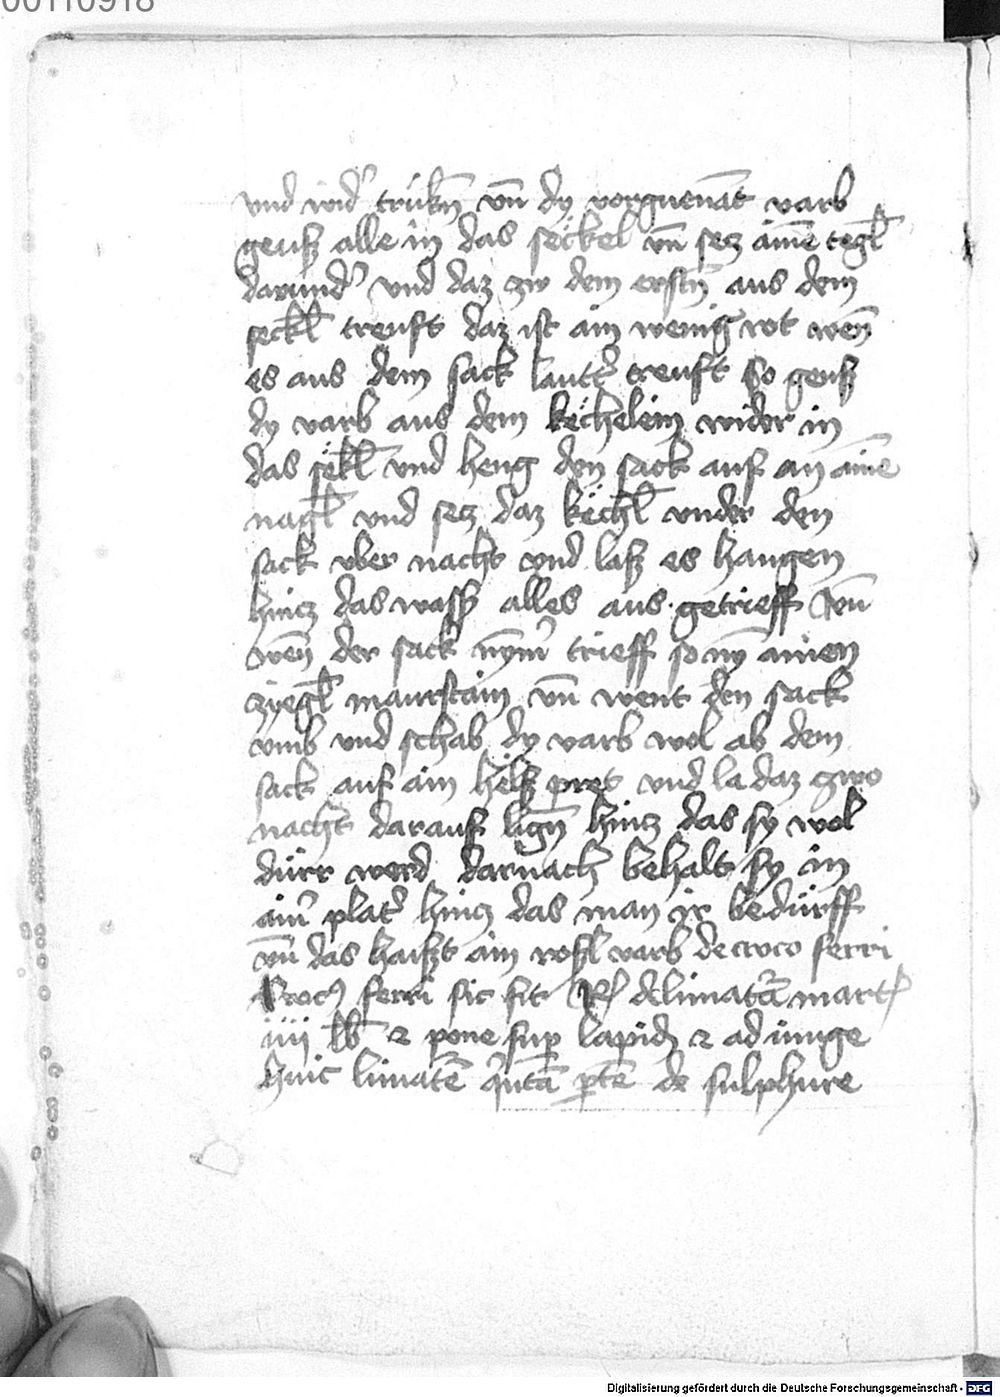 00110918
vnd wid᷑ trukn̄ vn̄ dy vorguenāt varb
geusz alle in das seckel vn̄ secz aīne tegl̄
darund᷑ vnd daz zw dem erstn̄ aus dem
seckl̄ treuft daz ist ain wenig rot wen̄
es aus dem sack lautt᷑ treuft So geusz
dy varb aus dem kechelein wider in
das sekl̄ vnd heng den sack auf an aīne
nagl̄ vnd secz daz kechl̄ vnder den
sack vber nacht vnd lasz es hangen
hincz das wass᷑ alles aus getrieff Vn̄
wen̄ der sack nym᷑ trieff so ny ainen
ziegl̄ maurstain vn̄ went den sack
vmb vnd schab dy varb wol ab dem
sack auf ain helsz pret vnd la daz zwo
nacht darauf lign̄ hincz das sy wol
dürr werd darnach behalt sy in
ain᷑ plat᷑ hincz das man ir bedürff
vn̄ das haiszt ain rosl varb de croco ferri
Croc⁹ ferri sic fit Rꝭ delimatā martꝭ
iiij lb̄ ⁊ pone sup̱ lapidē ⁊ ad iunge
huic limatē q̓ntā p̱tē de sulphure
Digitalisierung gefördert durch die Deutsche Forschungsgemeinschaft - DFG